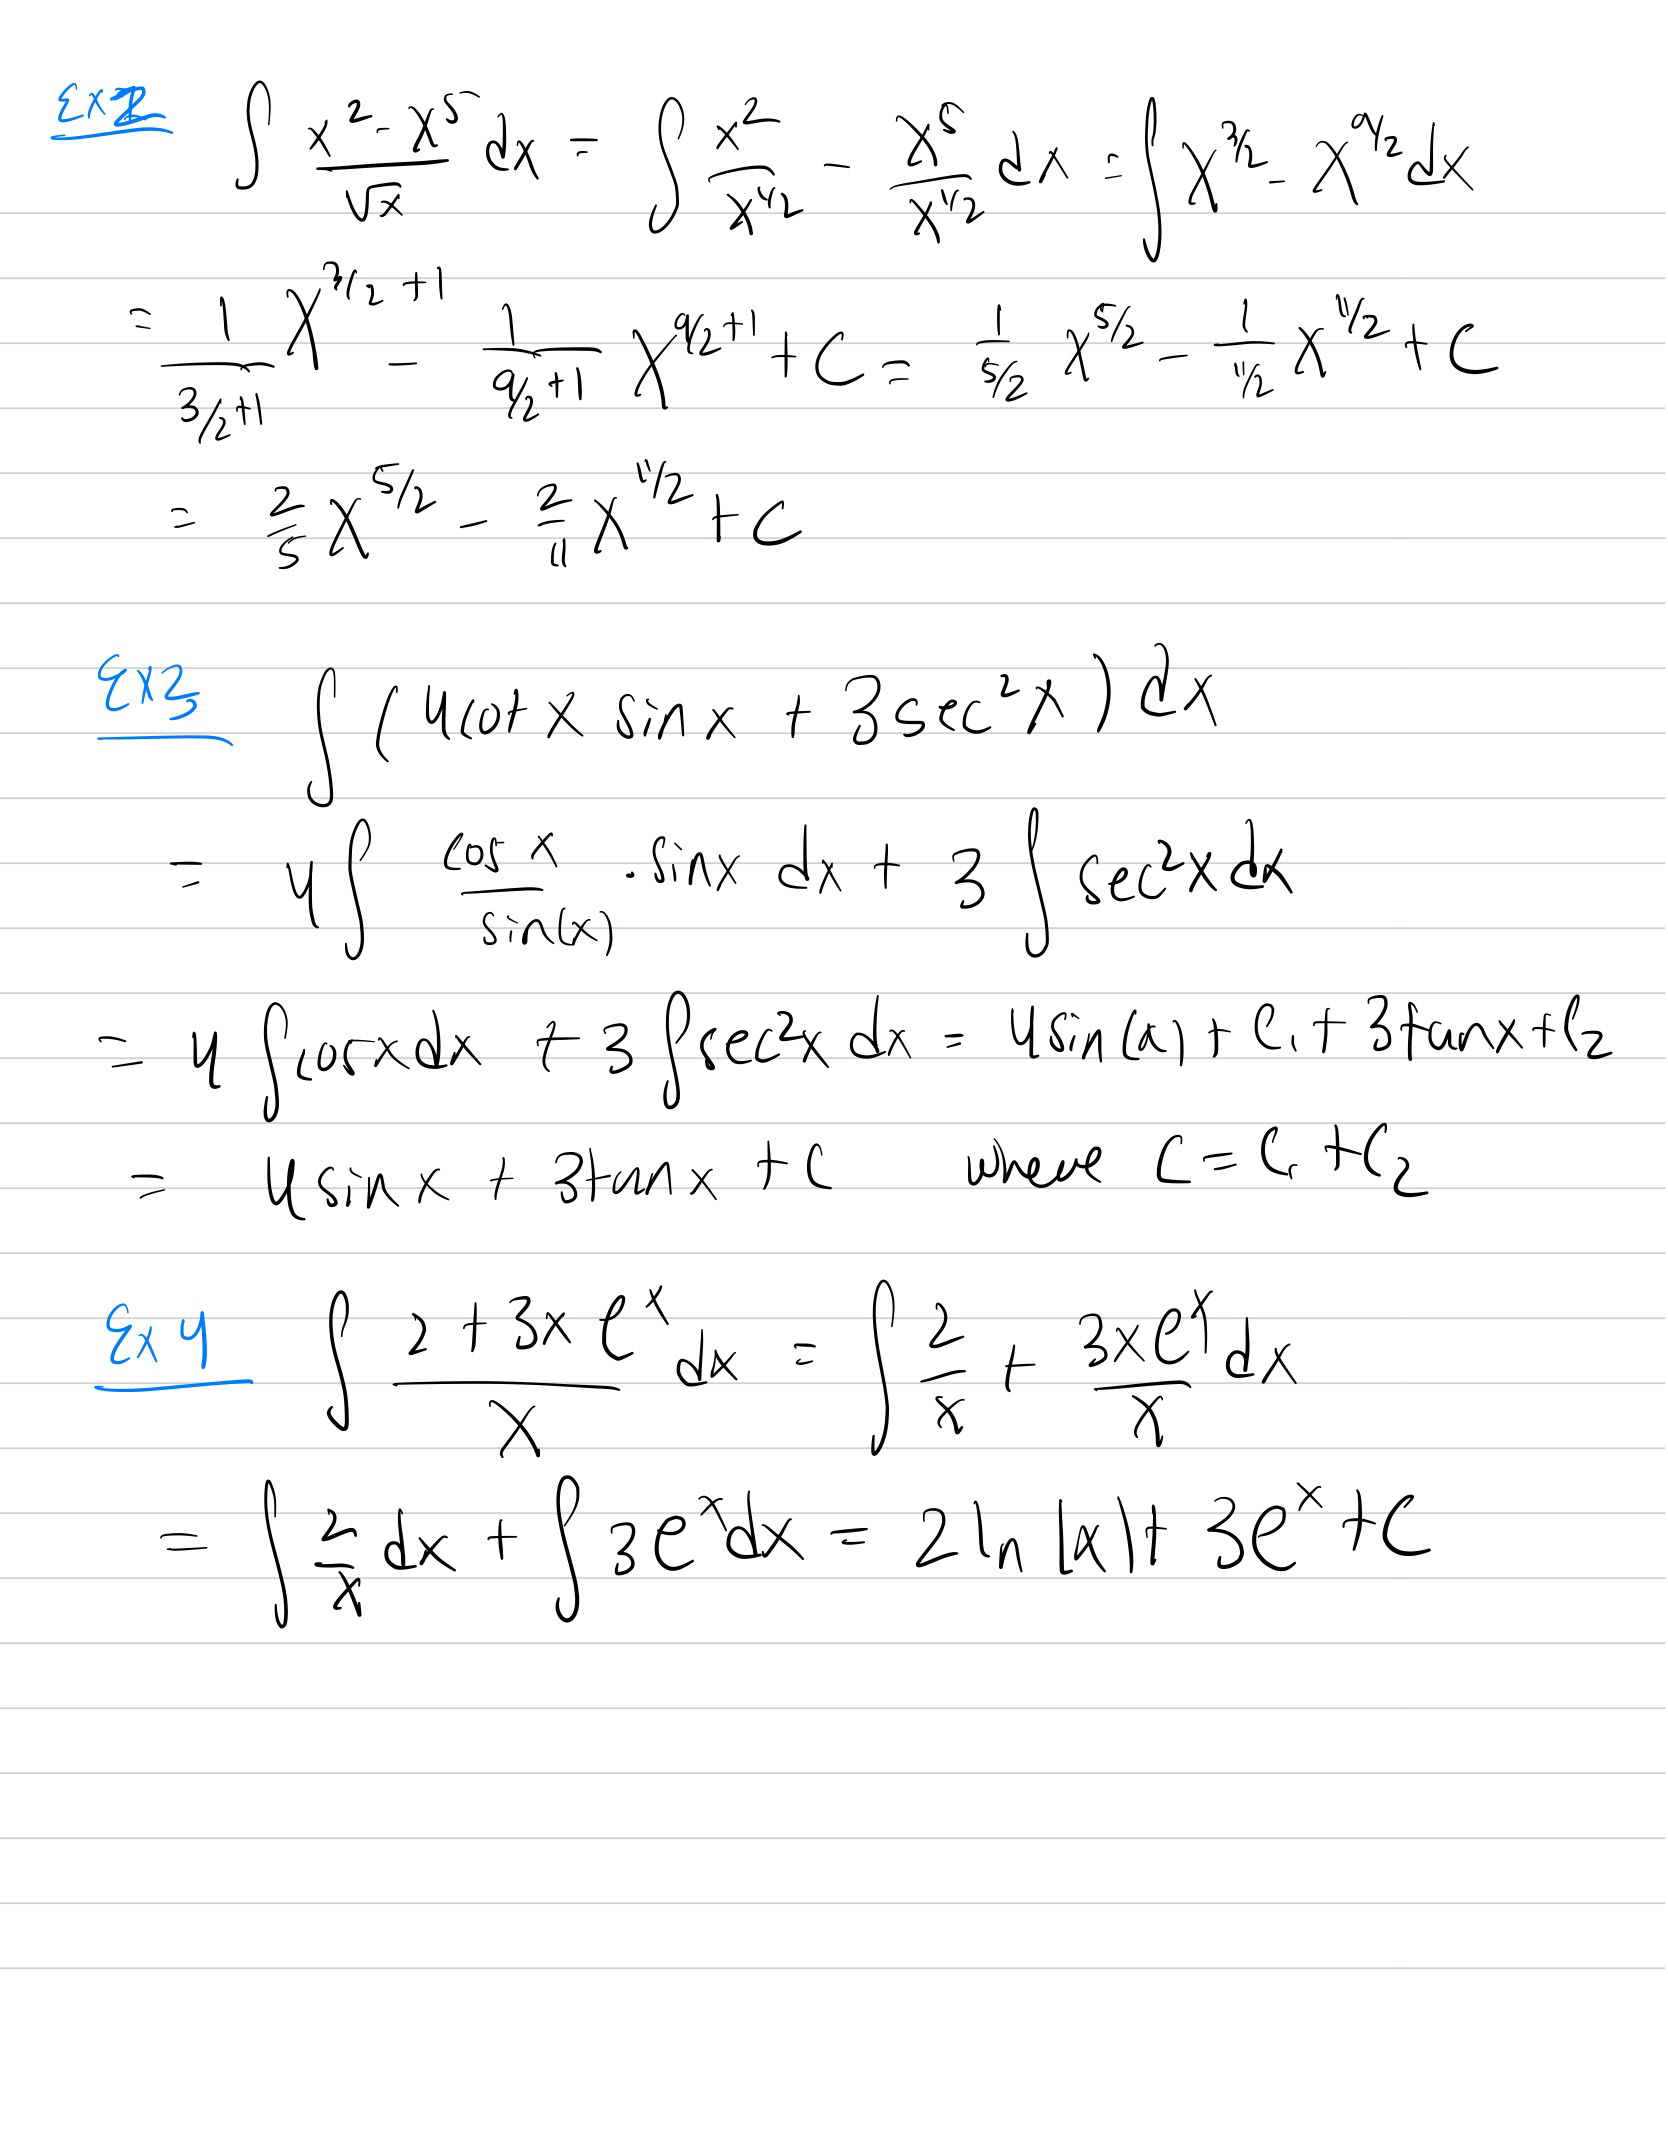 Ex2 ∫ (x² - x⁵)/√x dx = ∫ x²/x^(1/2) - x⁵/x^(1/2) dx = ∫ x^(3/2) - x^(9/2) dx
= 1/(3/2+1) x^(3/2+1) - 1/(9/2+1) x^(9/2+1) + C = 1/(5/2) x^(5/2) - 1/(11/2) x^(11/2) + C
= 2/5 x^(5/2) - 2/11 x^(11/2) + C
Ex3 ∫ (4cotx sinx + 3sec²x) dx
= 4∫ cosx/sin(x) · sinx dx + 3∫ sec²x dx
= 4∫cosxdx + 3∫sec²x dx = 4sin(x) + C₁ + 3tanx + C₂
= 4sinx + 3tanx + C where C = C₁ + C₂
Ex4 ∫ (2 + 3xe^x)/x dx = ∫ 2/x + 3xe^x/x dx
= ∫ 2/x dx + ∫ 3e^x dx = 2ln|x| + 3e^x + C